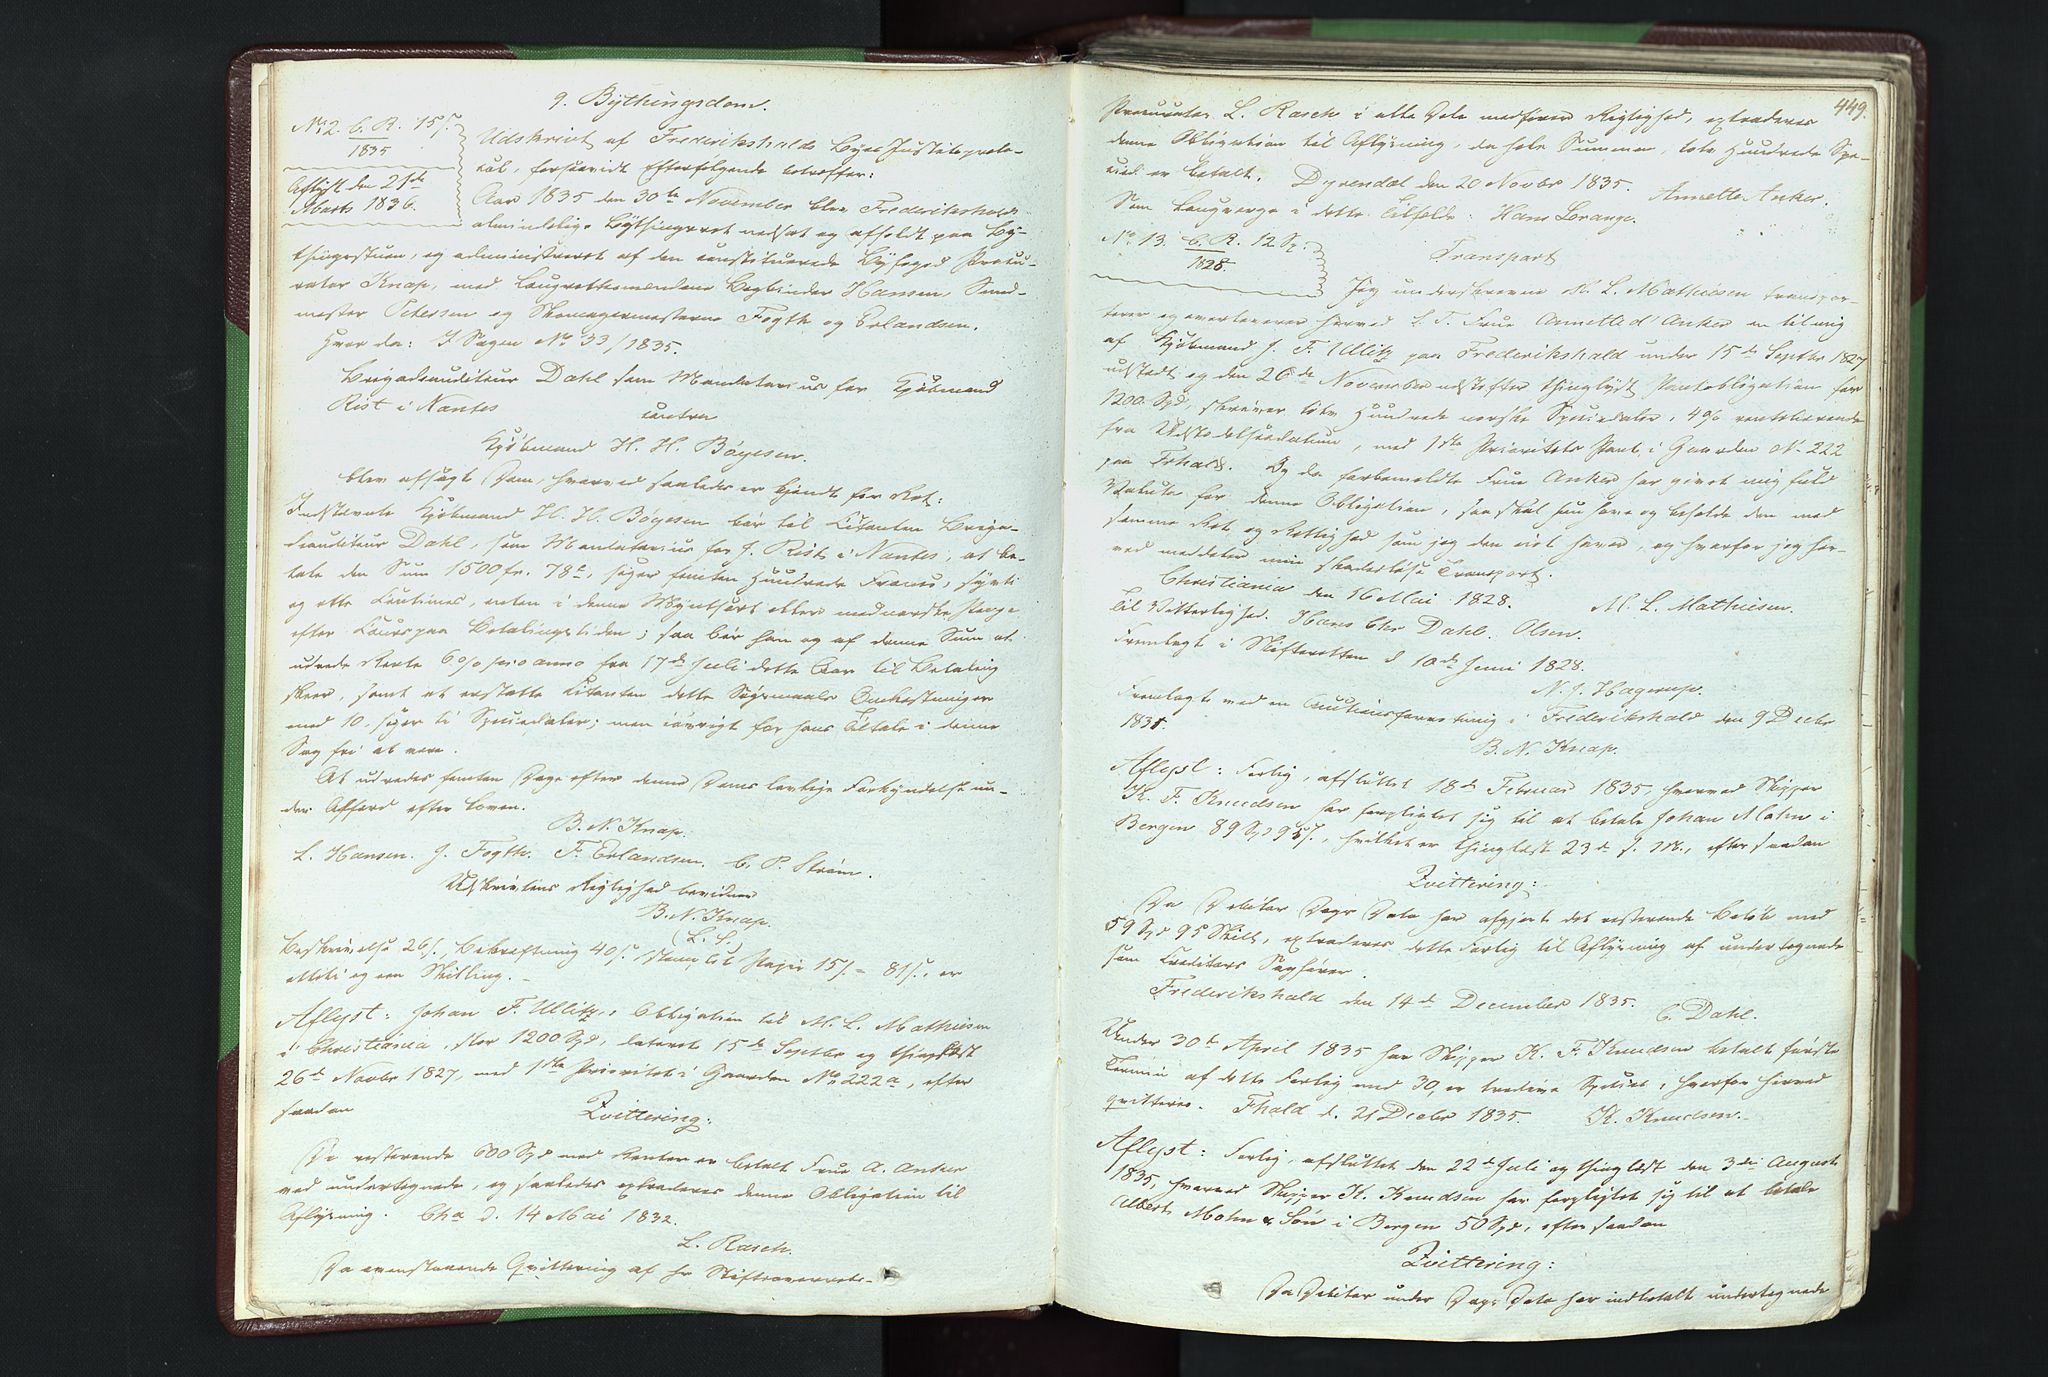 9. Bythingsdom.
No 2. C. R. 15 s.
1835
Aflyst den 21de
Marts 1836.
Udskrivt af Frederikshalds Byes Justitsproto-
col, forsaavidt Efterfølgende betræffer:
Aar 1835 den 30te November blev Frederikshalds
almindelige Bythingsret nedsat og afholdt paa By-
thingsstuen, og administreret af den constituerede Byfoged Procu-
rator Knap, med Laugrettesmændene Bogbinder Hansen, Smed-
mester Petersen og Skomagermesterne Fogth og Erlandsen.
Hvor da: I Sagen No 33/1835.
Brigadeauditeur Dahl som Mandatarius for Kjøbmand
Rist i Nantes contra
Kjøbmand H. H. Bøyesen.
blev afsagt Dom, hvorved saaledes er kjendt for Ret:
Indstævnte Kjøbmand H. H. Bøyesen bør til Citanten Briga-
deauditeur Dahl, som Mandatarius for J. Rist i Nantes, at be-
tale den Sum 1500 fr. 78 c, siger femten Hundrede Francs, sytti
og otte Centimes, enten i denne Myntsort eller med norske Penge
efter Cours paa Betalingstiden; saa bør han og af denne Sum at
udrede Rente 6 o/o pro anno fra 17de Juli dette Aar til Betaling
skeer, samt at erstatte Citanten dette Søgsmaals Omkostninger
med 10, siger ti Speciedaler; men iøvrigt for hans Tiltale i denne
Sag fri at være.
At udredes femten Dage efter denne Doms lovlige Forkyndelse un-
der Adfærd efter Loven.
B. N. Knap.
L. Hansen. J. Fogth. F. Erlandsen. C. P. Strøm.
Udskrivtens Rigtighed bevidner
B. N. Knap.
(L. S.)
Beskrivelse 26 s., Bekræftning 40 s., stemplet Papir 15 s. = 81 s., er
otteti og een Skilling.
Aflyst: Johan F. Ullitz's Obligation til M. L. Mathiesen
i Christiania, stor 1200 Spd, dateret 15de Septbr og thinglæst
26d Novbr 1827, med 1ste Prioritet i Gaarden No 222a, efter
saadan
Qvittering:
De resterende 600 Spd med Renter er betalt Frue A. Anker
ved undertegnede, og saaledes extraderes denne Obligation til
Aflysning. Cha d. 14 Mai 1832.
L. Rasch.
Da ovenstaaende Qvittering af Hr Stiftsoverrets-
449.
Procurator L. Rasch i alle Dele medfører Rigtighed, extraderes
denne Obligation til Aflysning, da hele Summen, tolv Hundrede Spe-
cied. er betalt. Dyrendal den 20 Novbr 1835. Annette Anker.
Som Laugværge i dette Tilfælde: Hans Lorange.
No 13. C. R. 12 Sp:
1828.
Transport
Jeg underskrevne M. L. Mathiesen transpor-
terer og overleverer herved S. T. Frue Annette d'Anker en til mig
af Kjøbmand J. F. Ullitz paa Frederikshald under 15de Septbr 1827
udstædt og den 26de November udstefter thinglyst Pantobligation for
1200 Spd, skriver tolv Hundrede norske Speciedaler, 4 o/o rentebærende
fra Udstædelsesdatum, med 1ste Prioritets Pant i Gaarden No 222
paa Frhald. Og da forbemeldte Frue Anker har givet mig fuld
Valuta for denne Obligation, saa skal hun have og beholde den med
samme Ret og Rettighed som jeg den eiet haver, og hvorfor jeg her-
ved meddeler min skadesløse Transport.
Christiania den 16 Mai 1828. M. L. Mathiesen.
Til Vitterlighed. Hans Chr Dahl. Olsen.
Fremlagt i Skifteretten d 10de Juni 1828.
N. J. Hagerup.
Fremlagt ved en Auctionsforretning i Frederikshald den 9 Decbr
1831.
B. N. Knap.
Aflyst: Forlig, afsluttet 18de Februar 1835, hvorved Skipper
K. F. Knudsen har forpligtet sig til at betale Johan Mohn i
Bergen 89 Spd 95 s., hvilket er thinglæst 23de s. M., efter saadan
Qvittering:
Da Debitor Dags Dato har afgjort det resterende Beløb med
59 Spd 95 Skill, extraderes dette Forlig til Aflysning af undertegnede
som Creditors Sagfører.
Frederikshald den 14de December 1835. C. Dahl.
Under 30te April 1835 har Skipper K. F. Knudsen betalt første
Termin af dette Forlig med 30, er tredive Specier, hvorfor herved
qvitteres. Fhald d. 21 Decbr 1835. K. Knudsen.
Aflyst: Forlig, afsluttet den 22de Juli og thinglæst den 3die August
1835, hvorved Skipper K. Knudsen har forpligtet sig til at betale
Albert Mohn & Søn i Bergen 50 Spd, efter saadan
Qvittering:
Da Debitor under Dags Dato har indbetalt undertegnede